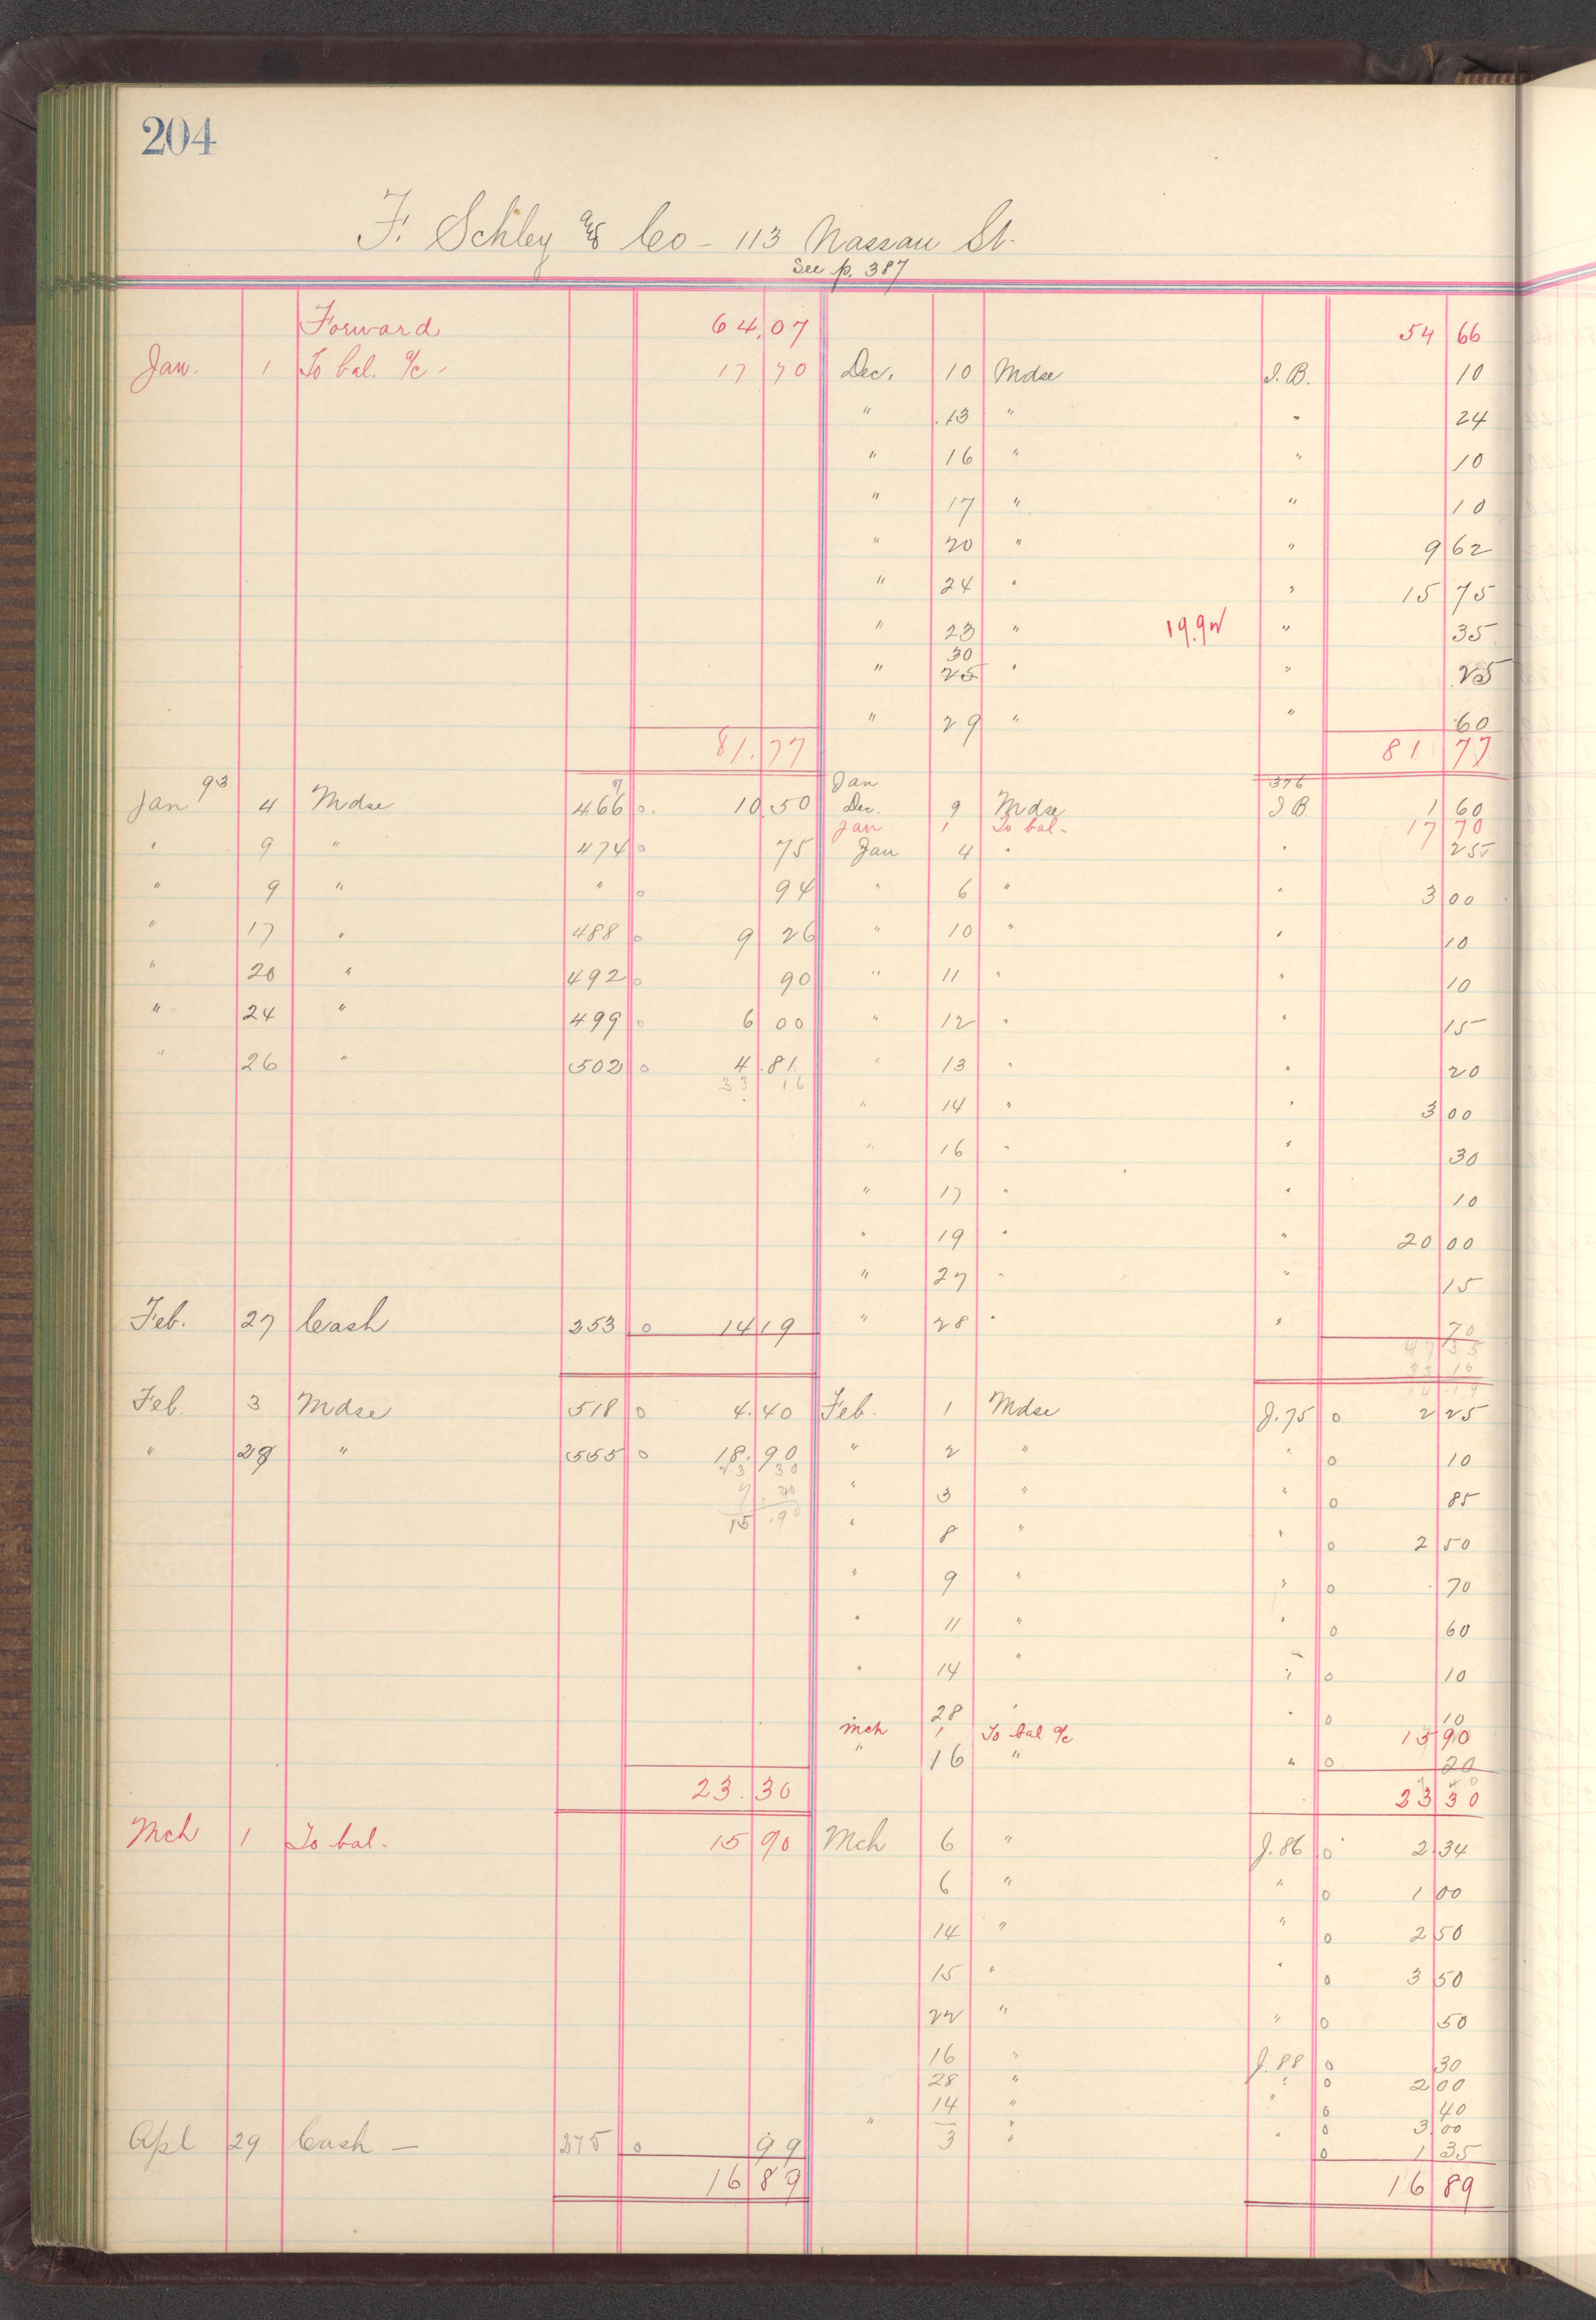 204
F. Schley & Co - 113 Nassau St.
See p. 387
Forward 64.07 54 66
Jan. 1 To bal. a/c 17 70 Dec. 10 Mdse J.B. 10
" 13 " " 24
" 16 " " 10
" 17 " " 10
" 20 " " 9 62
" 24 " " 15 75
" 23 " 19.92 " 35
30
" 25 " " 25
" 29 " " 60
81.77 81 77
Jan 93 4 Mdse 466 o 10.50 Jan
Dec. 9 Mdse 376 J B 1 60
Jan 1 To bal. 17 70
" 9 " 474 o 75 Jan 4 " " 25
" 9 " " o 94 " 6 " " 3 00
" 17 " 488 o 9 26 " 10 " " 10
" 20 " 492 o 90 " 11 " " 10
" 24 " 499 o 6 00 " 12 " " 15
" 26 " 502 o 4.81 " 13 " " 20
33 16
" 14 " " 3 00
" 16 " " 30
" 17 " " 10
" 19 " " 20 00
" 27 " " 15
Feb. 27 Cash 253 o 14 19 " 28 " " 70
47 35
33 16
14.19
Feb. 3 Mdse 518 o 4.40 Feb. 1 Mdse J.75 o 2 25
" 28 " 555 o 18.90 " 2 " " o 10
23 30
7.40 " 3 " " o 85
15.90 " 8 " " o 2 50
" 9 " " o 70
" 11 " " o 60
" 14 " " o 10
28 " " o 10
Mch 1 To bal a/c 15 90
" 16 " " o 20
23.30 23 30
Mch 1 To bal. 15 90 Mch 6 " J.86 o 2.34
6 " " o 1 00
14 " " o 2 50
15 " " o 3 50
22 " " o 50
16 " J.88 o 30
28 " " o 2 00
14 " " o 40
" — " " o 3.00
Apl 29 Cash — 275 o 99 3 " " o 1 35
16 89 16 89